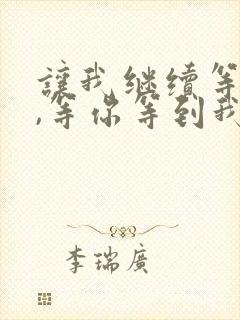 讓我继续等
,等你等到我
李瑞廣